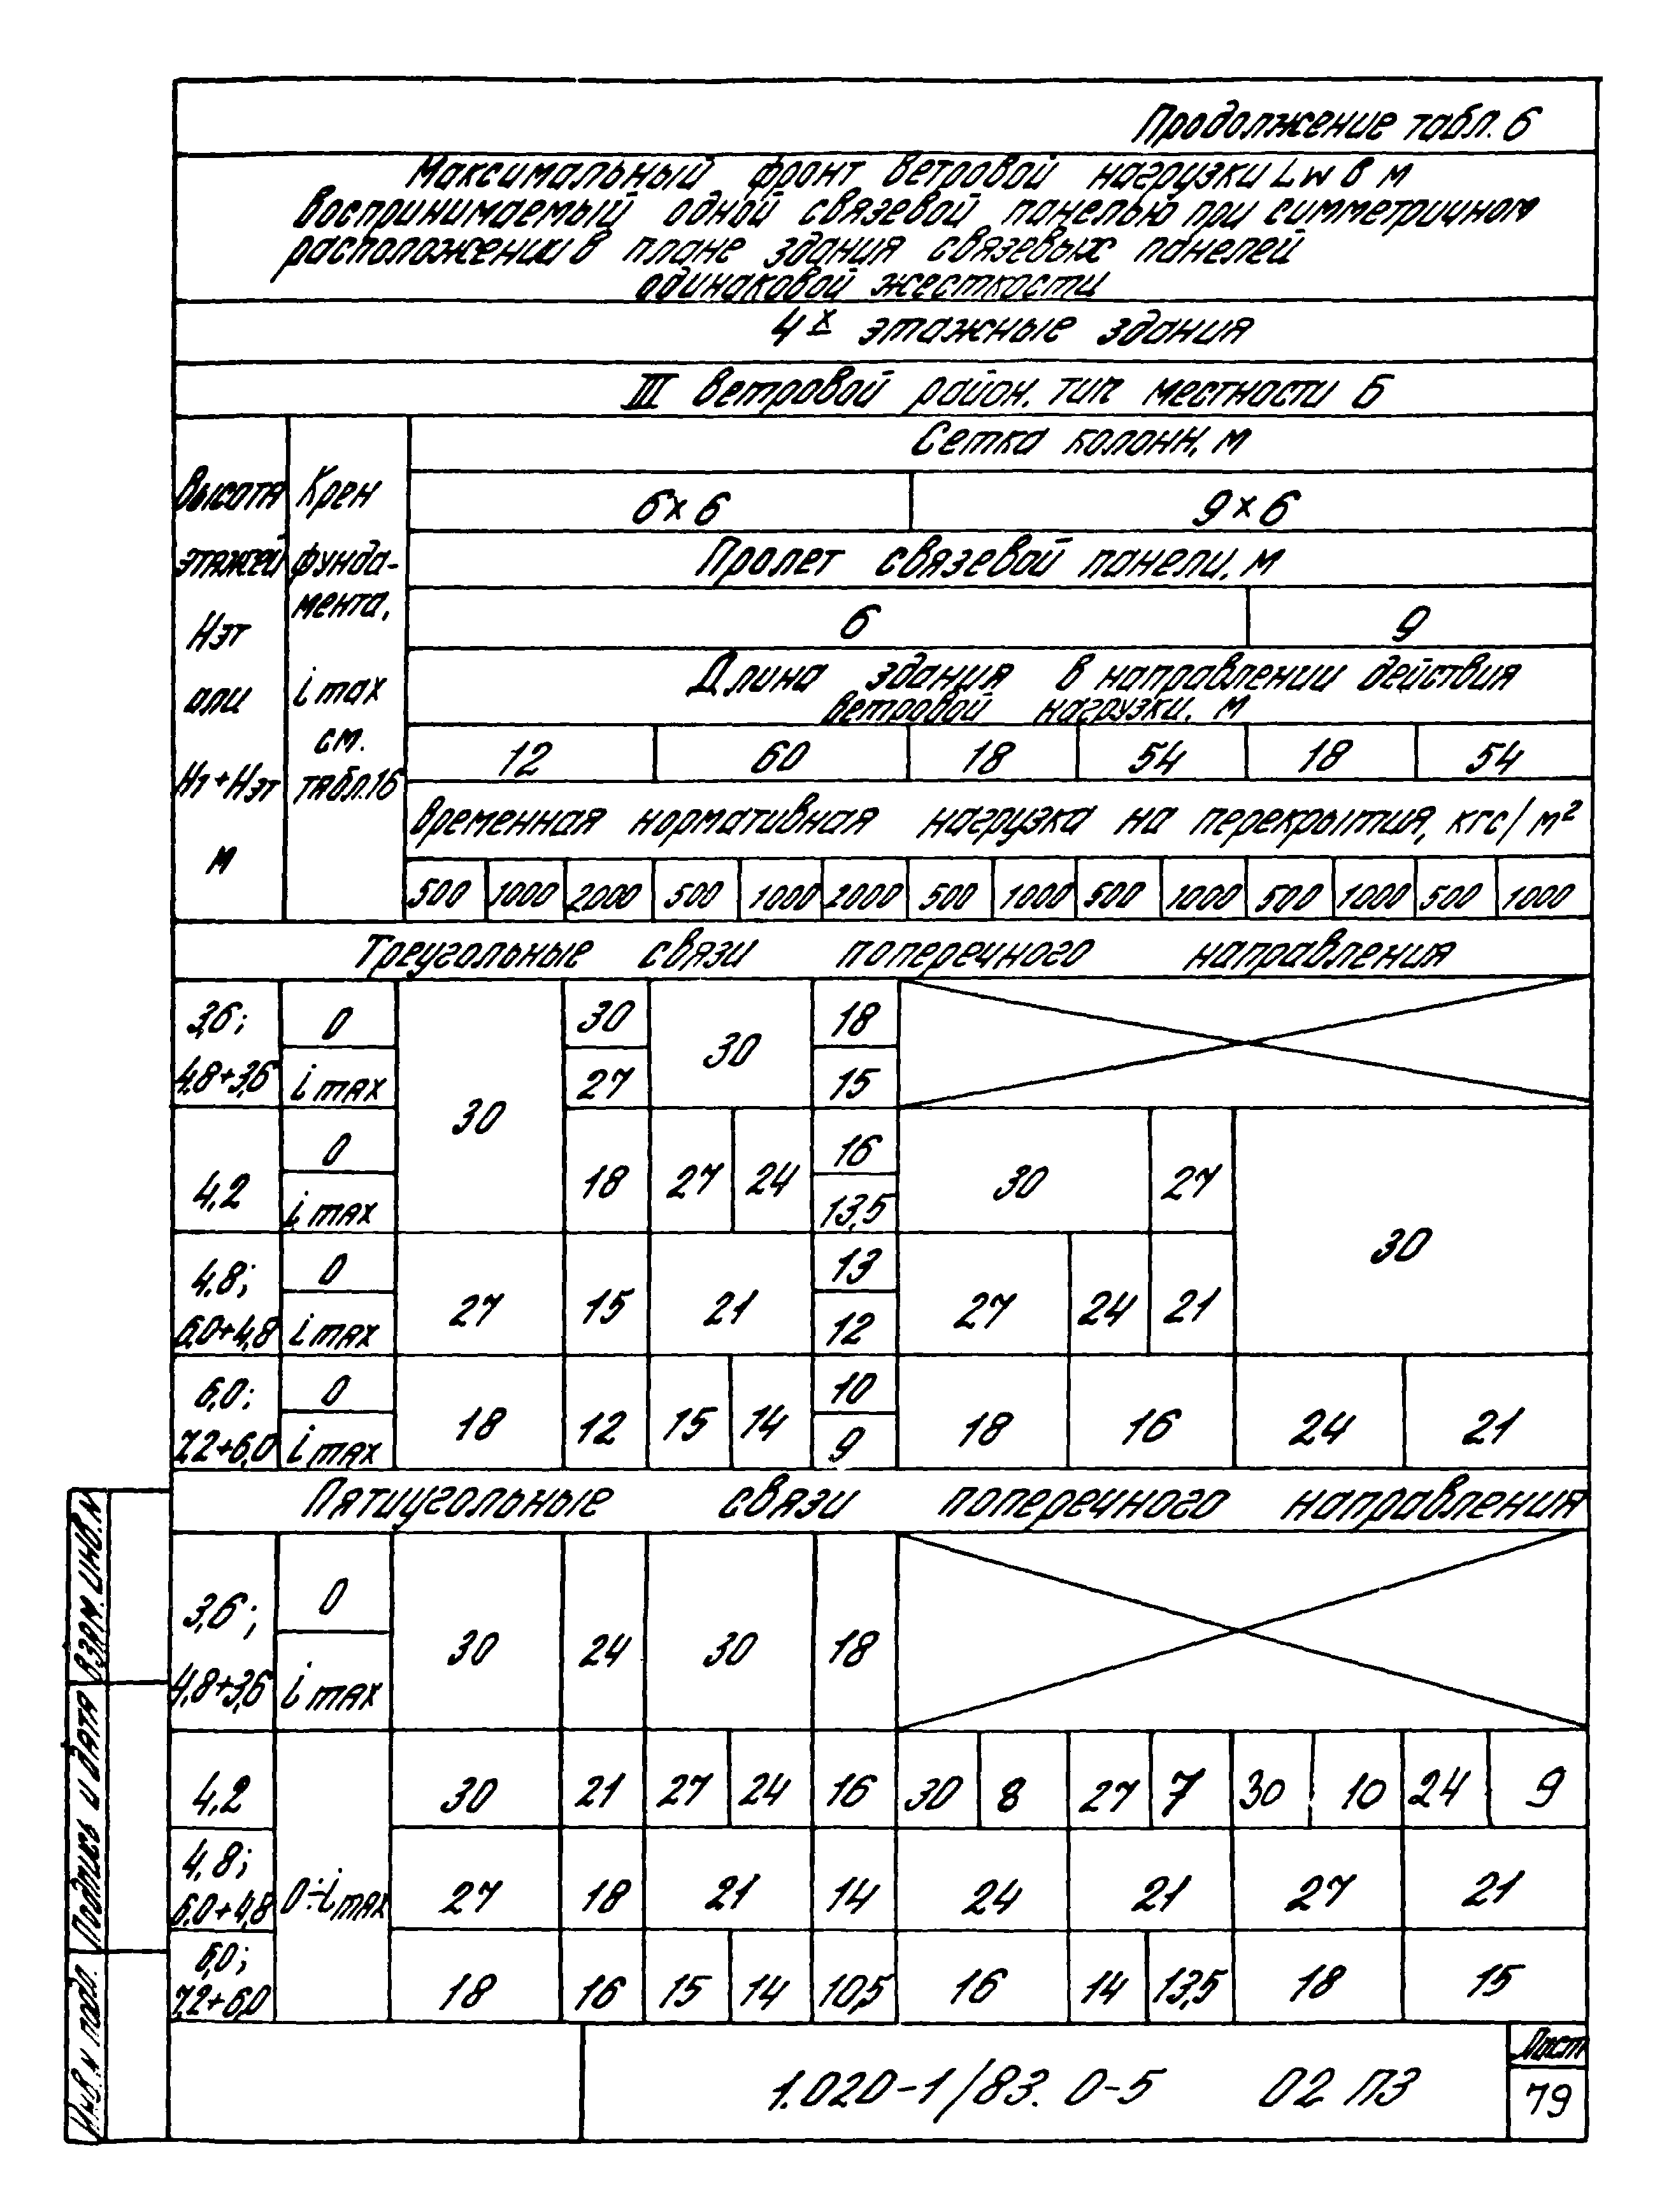 Продолжение табл. 6
Максимальный фронт ветровой нагрузки Lw в м
воспринимаемый одной связевой панелью при симметричном
расположении в плане здания связевых панелей
одинаковой жесткости
4х этажные здания
III ветровой район, тип местности Б
Высота этажей Нэт или Н1+Нэт м
Крен фунда- мента, i max см. табл.16
Сетка колонн, м
6×6 9×6
Пролет связевой панели, м
6 9
Длина здания в направлении действия
ветровой нагрузки, м
12 60 18 54 18 54
Временная нормативная нагрузка на перекрытия, кгс/м²
500 1000 2000 500 1000 2000 500 1000 500 1000 500 1000 500 1000
Треугольные связи поперечного направления
3,6; 0 30 18
30 30
4,8+3,6 i max 27 15
0 16
4,2 18 27 24 30 27
i max 13,5
30
4,8; 0 13
27 15 21 27 24 21
6,0+4,8 i max 12
6,0; 0 10
18 12 15 14 18 16 24 21
7,2+6,0 i max 9
Пятиугольные связи поперечного направления
3,6; 0
30 24 30 18
4,8+3,6 i max
4,2 30 21 27 24 16 30 8 27 7 30 10 24 9
4,8;
6,0+4,8 0÷i max 27 18 21 14 24 21 27 21
6,0;
7,2+6,0 18 16 15 14 10,5 16 14 13,5 18 15
Взам. инв. N
Подпись и дата
Инв. N подл.
1.020-1/83. 0-5 02 ПЗ
Лист
79